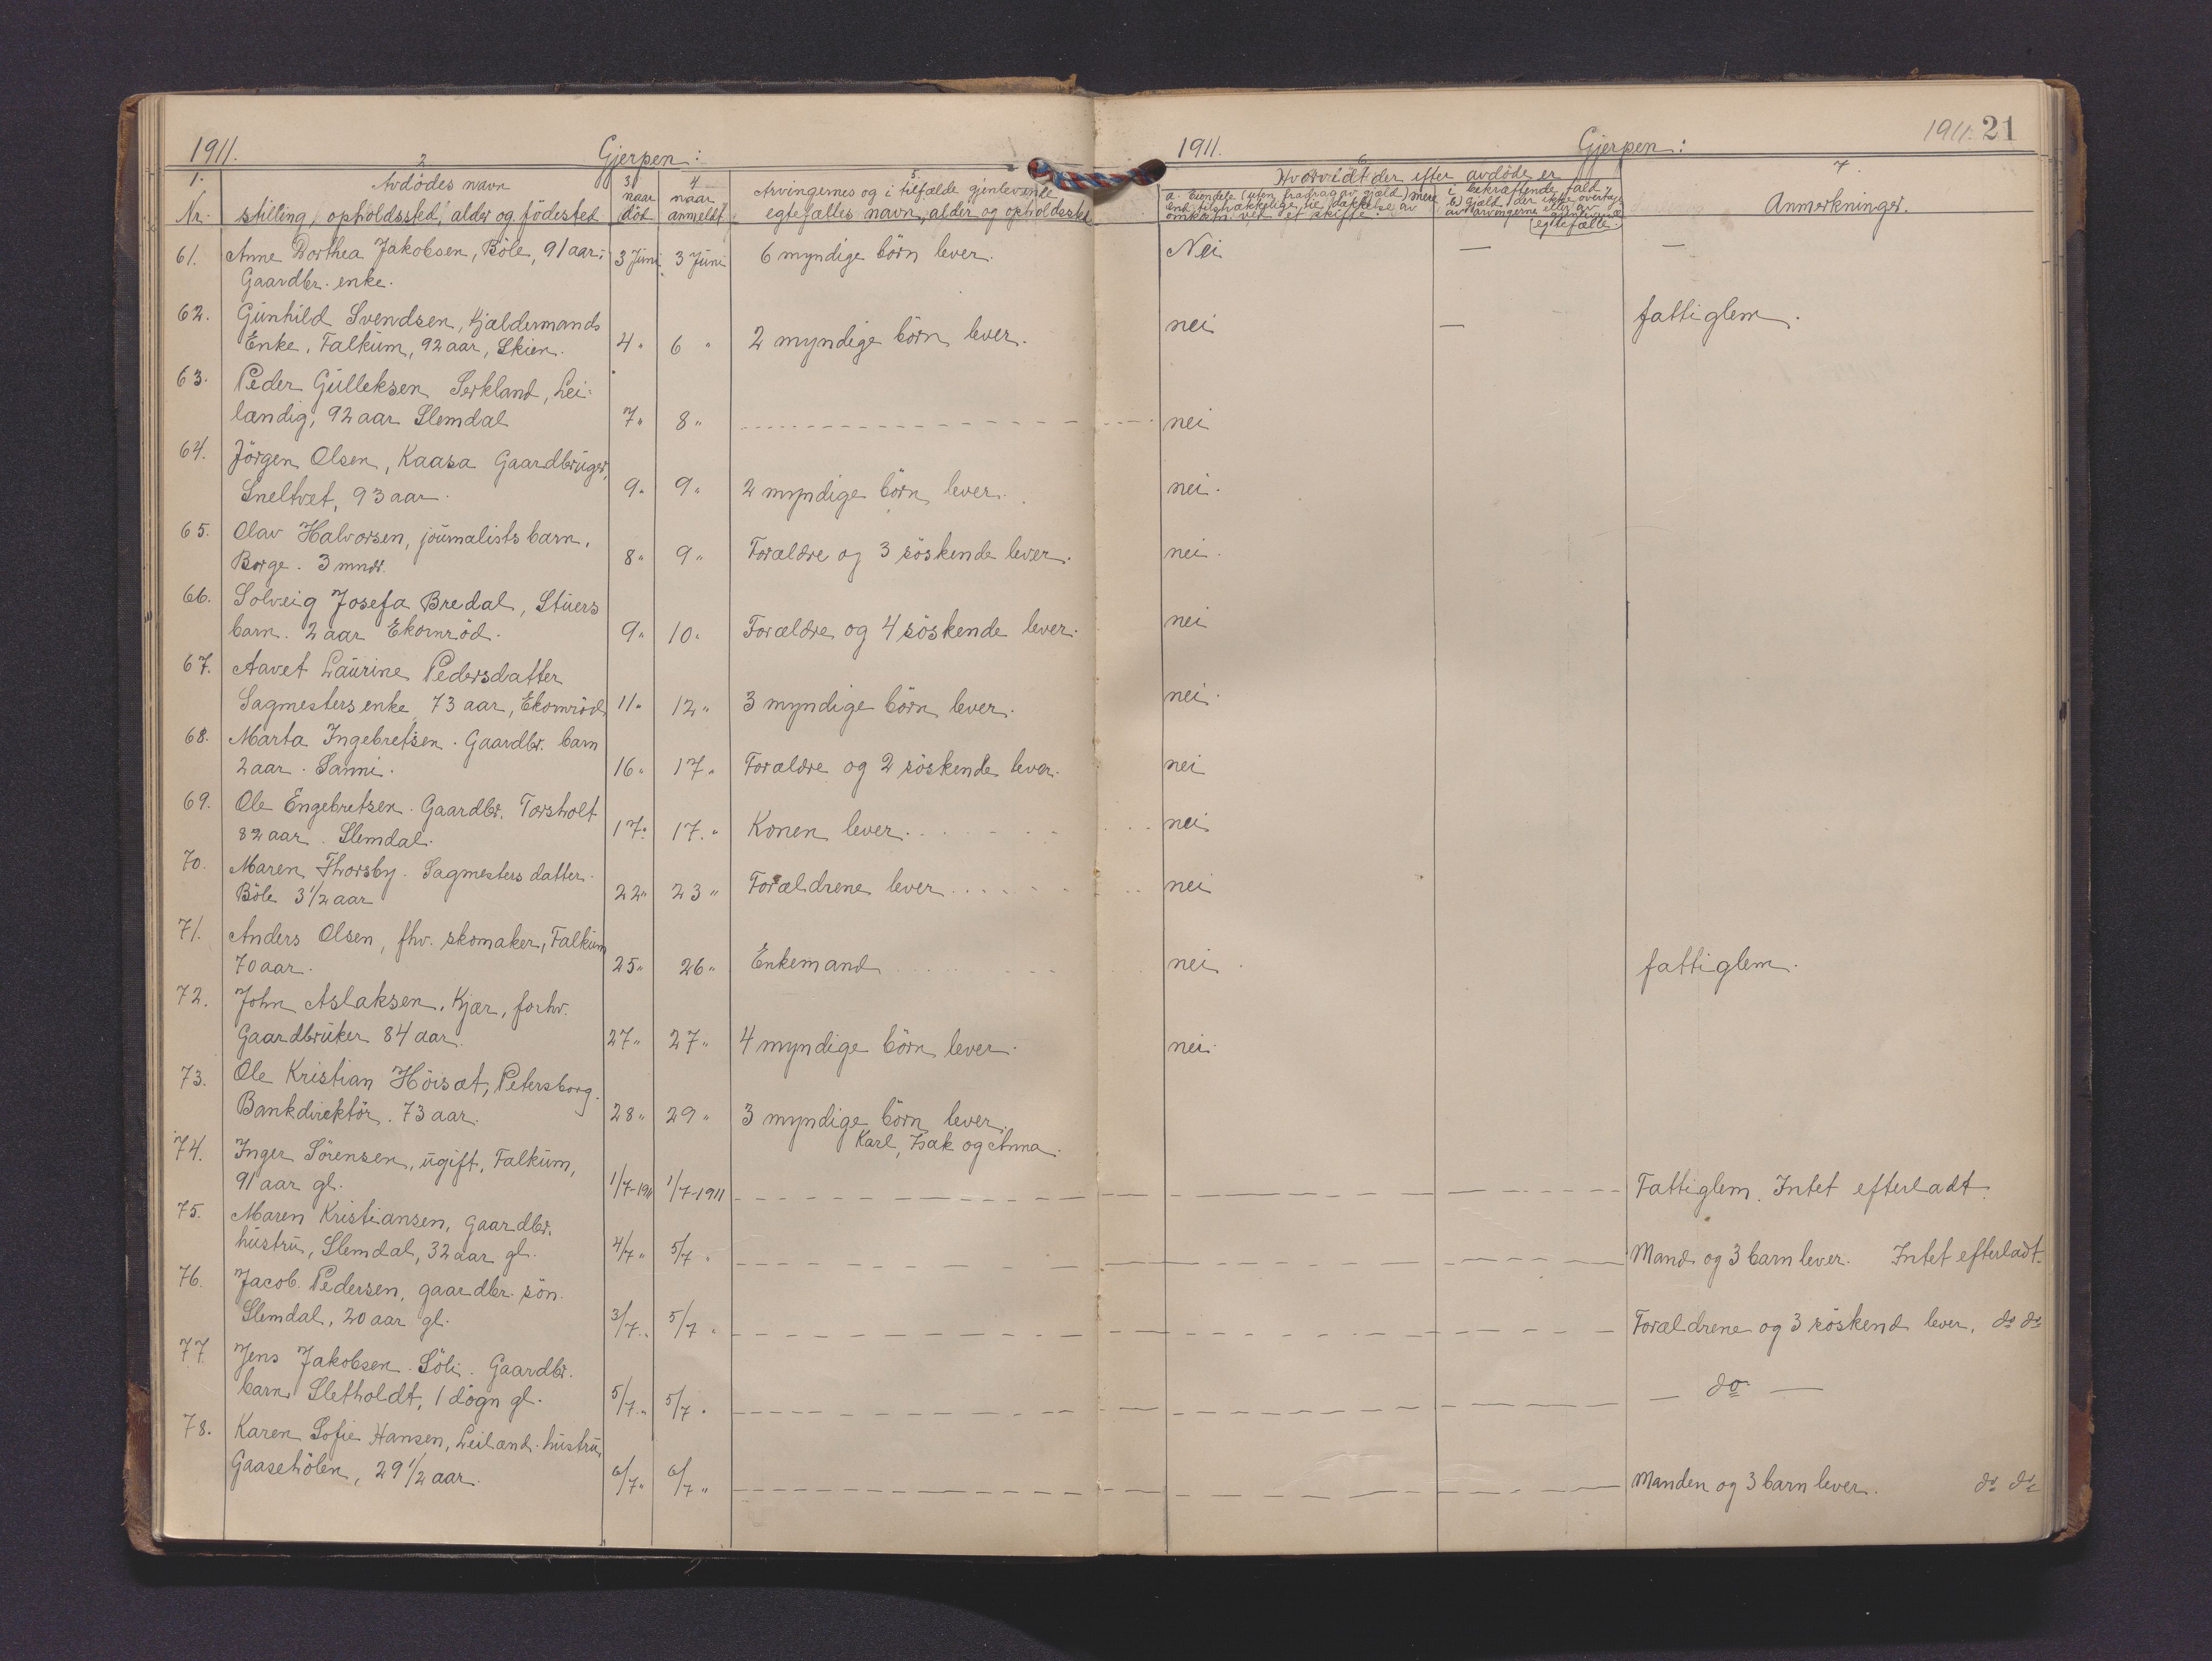 1911. Gjerpen:
1. 2 3. 4 5.
Nr. Avdödes navn stilling, opholdssted, alder og födested
naar död. naar anmeldt
Arvingernes og i tilfælde gjenlevende egtefælles navn, alder og opholdssted
1911. Gjerpen: 1911. 21
6. 7
Hvorvidt der efter avdöde er
a. Eiendele (uten fradrag av gjæld) mere end tilstrækkelige til dækkelse av omkostn. ved et skifte.
i bekræftende fald b) Gjæld, der ikke overtages av arvingerne eller av gjenlevende egtefælle.
Anmerkninger.
61. Anne Dorthea Jakobsen, Böle, 91 aar. 3 Juni 3 Juni 6 myndige börn lever. Nei — —
Gaardbr. enke.
62. Gunhild Svendsen, Kjældermands
Enke, Falkum, 92 aar, Skien. 4 " 6 " 2 myndige börn lever. nei — fattiglem.
63. Peder Gulleksen Serkland, Lei-
lændig, 92 aar Slemdal 7 " 8 " nei
64. Jörgen Olsen, Kaasa Gaardbruger,
Sneltvet, 93 aar. 9. 9 " 2 myndige börn lever. nei.
65. Olav Halvorsen, journalists barn.
Borge. 3 mndr. 8 " 9 " Forældre og 3 söskende lever. nei.
66. Solveig Josefa Bredal, Stuers
barn. 2 aar Ekornröd. 9 " 10 " Forældre og 4 söskende lever. nei
67. Aavet Laurine Pedersdatter
Sagmesters enke 73 aar, Ekornröd 11 " 12 " 3 myndige börn lever. nei.
68. Marta Ingebretsen. Gaardbr. barn
2 aar. Sanni. 16 " 17 " Forældre og 2 söskende lever. nei
69. Ole Engebretsen. Gaardbr. Torsholt
82 aar. Slemdal. 17 " 17. " Konen lever. nei
70. Maren Thorsby. Sagmesters datter.
Böle 3 1/2 aar 22 " 23 " Forældrene lever nei
71. Anders Olsen, fhv. skomaker, Falkum
70 aar. 25 " 26 " Enkemand nei. fattiglem.
72. John Aslaksen, Kjær, forhv.
Gaardbruker 84 aar. 27 " 27 " 4 myndige börn lever. nei.
73. Ole Kristian Höisæt, Petersborg.
Bankdirektör. 73 aar. 28 " 29 " 3 myndige börn lever.
Karl, Isak og Anna.
74. Inger Sörensen, ugift, Falkum,
91 aar gl. 1/7-1911 1/7-1911 Fattiglem. Intet efterladt.
75. Maren Kristiansen, Gaardbr.
hustru, Slemdal, 32 aar gl. 4/7 " 5/7 " Mand og 3 barn lever. Intet efterladt.
76. Jacob Pedersen, gaardbr. sön.
Slemdal, 20 aar gl. 3/7 " 5/7 " Forældrene og 3 söskend lever. do do
77 Jens Jakobsen Söli. Gaardbr.
barn Sletholdt, 1 dögn gl. 5/7 " 5/7 " — do —
78. Karen Sofie Hansen, Leilænd. hustru
Gaasehölen, 29 1/2 aar. 6/7 " 6/7 " Manden og 3 barn lever. do do